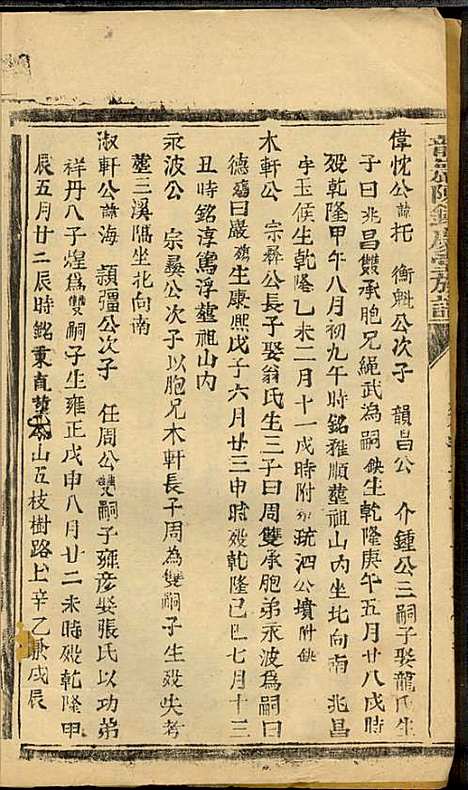 偉忱公諱托 衡魁公次子 韻昌公 介鍾公三嗣子娶龍氏生
子曰兆昌雙承胞兄繩武為嗣缺生乾隆庚午五月廿八戌時
殁乾隆甲午八月初九午時銘雅順塟祖山內坐北向南 兆昌
字玉侯生乾隆乙未二月十一戌時附 疏泗公墳附缺
木軒公 宗彝公長子娶翁氏生三子曰周雙承胞弟永波為嗣曰
德殤曰嚴殤生康熙戊子六月廿三申時殁乾隆己巳七月十三
丑時銘淳篤浮塟祖山內
永波公 宗彝公次子以胞兄木軒長子周為雙嗣子生殁失考
塟三溪隔坐北向南
淑軒公諱海 頴彊公次子 任周公雙嗣子雍彦娶張氏以功弟
祥丹八子煌為雙嗣子生雍正戊申八月廿二未時殁乾隆甲
辰五月廿二辰時銘秉直塟 山五枝樹路上辛乙兼戌辰